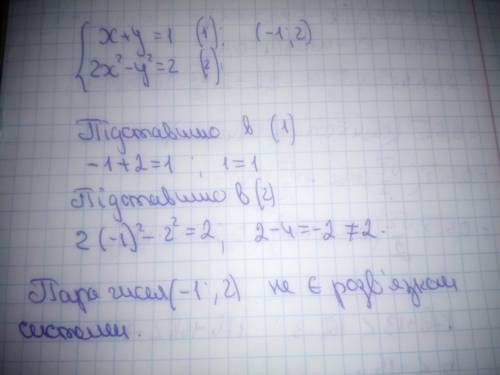 x+y=1 (1); (-1;2)
2x²-y²=2 (2);
Підставимо в (1)
-1+2=1; 1=1
Підставимо в (2)
2(-1)²-2²=2; 2-4=-2≠2.
Пара чисел (-1;2) не є розв'язком
системи.